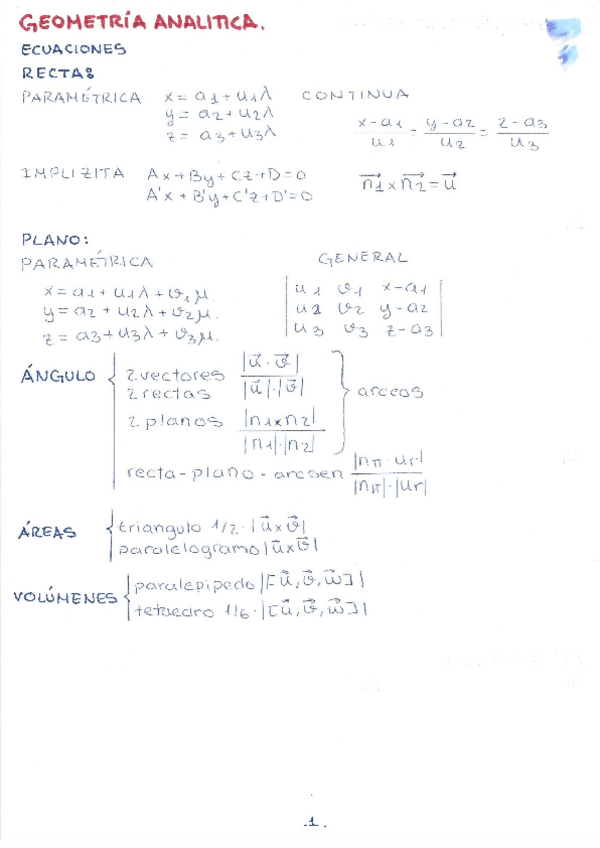 GEOMETRÍA ANALITICA.
ECUACIONES
RECTAS
PARAMÉTRICA x = a1 + u1λ CONTINUA
y = a2 + u2λ
z = a3 + u3λ
x-a1/u1 = y-a2/u2 = z-a3/u3
IMPLIZITA Ax + By + Cz + D = 0
A'x + B'y + C'z + D' = 0
n1 x n2 = u
PLANO:
PARAMÉTRICA GENERAL
x = a1 + u1λ + v1μ.
y = a2 + u2λ + v2μ.
z = a3 + u3λ + v3μ.
| u1 v1 x-a1
u2 v2 y-a2
u3 v3 z-a3 |
ÁNGULO
2 vectores
2 rectas
|u · v| / |u|·|v|
2 planos |n1 x n2| / |n1|·|n2|
arccos
recta - plano - arcsen |nπ · ur| / |nπ|·|ur|
ÁREAS
triangulo 1/2 · |u x v|
paralelogramo |u x v|
VOLÚMENES
paralepipedo |[u, v, w]|
tetraedro 1/6 · |[u, v, w]|
.1.